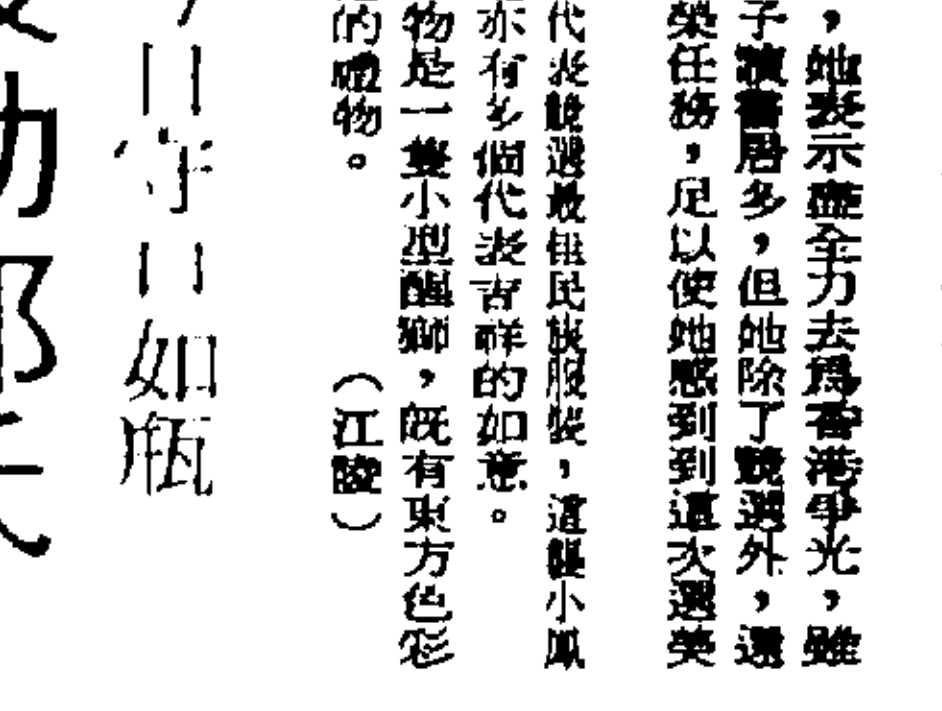 ，她表示盡全力去爲香港爭光，雖
子讀書居多，但她除了競選外，還
榮任務，足以使她感到到這次選美
代表競選最佳民族服裝，這襲小鳳
亦有多個代表吉祥的如意。
物是一隻小型醒獅，既有東方色彩
的禮物。（江陵）
守口如瓶